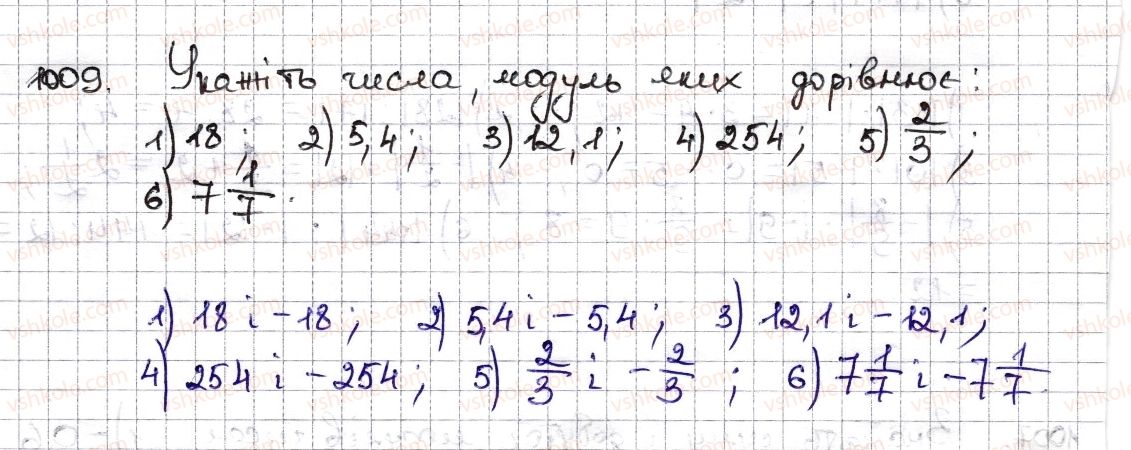 1009. Укажіть числа, модуль яких дорівнює:
1) 18; 2) 5,4; 3) 12,1; 4) 254; 5) 2/3;
6) 7 1/7.
1) 18 і -18; 2) 5,4 і -5,4; 3) 12,1 і -12,1;
4) 254 і -254; 5) 2/3 і -2/3; 6) 7 1/7 і -7 1/7.